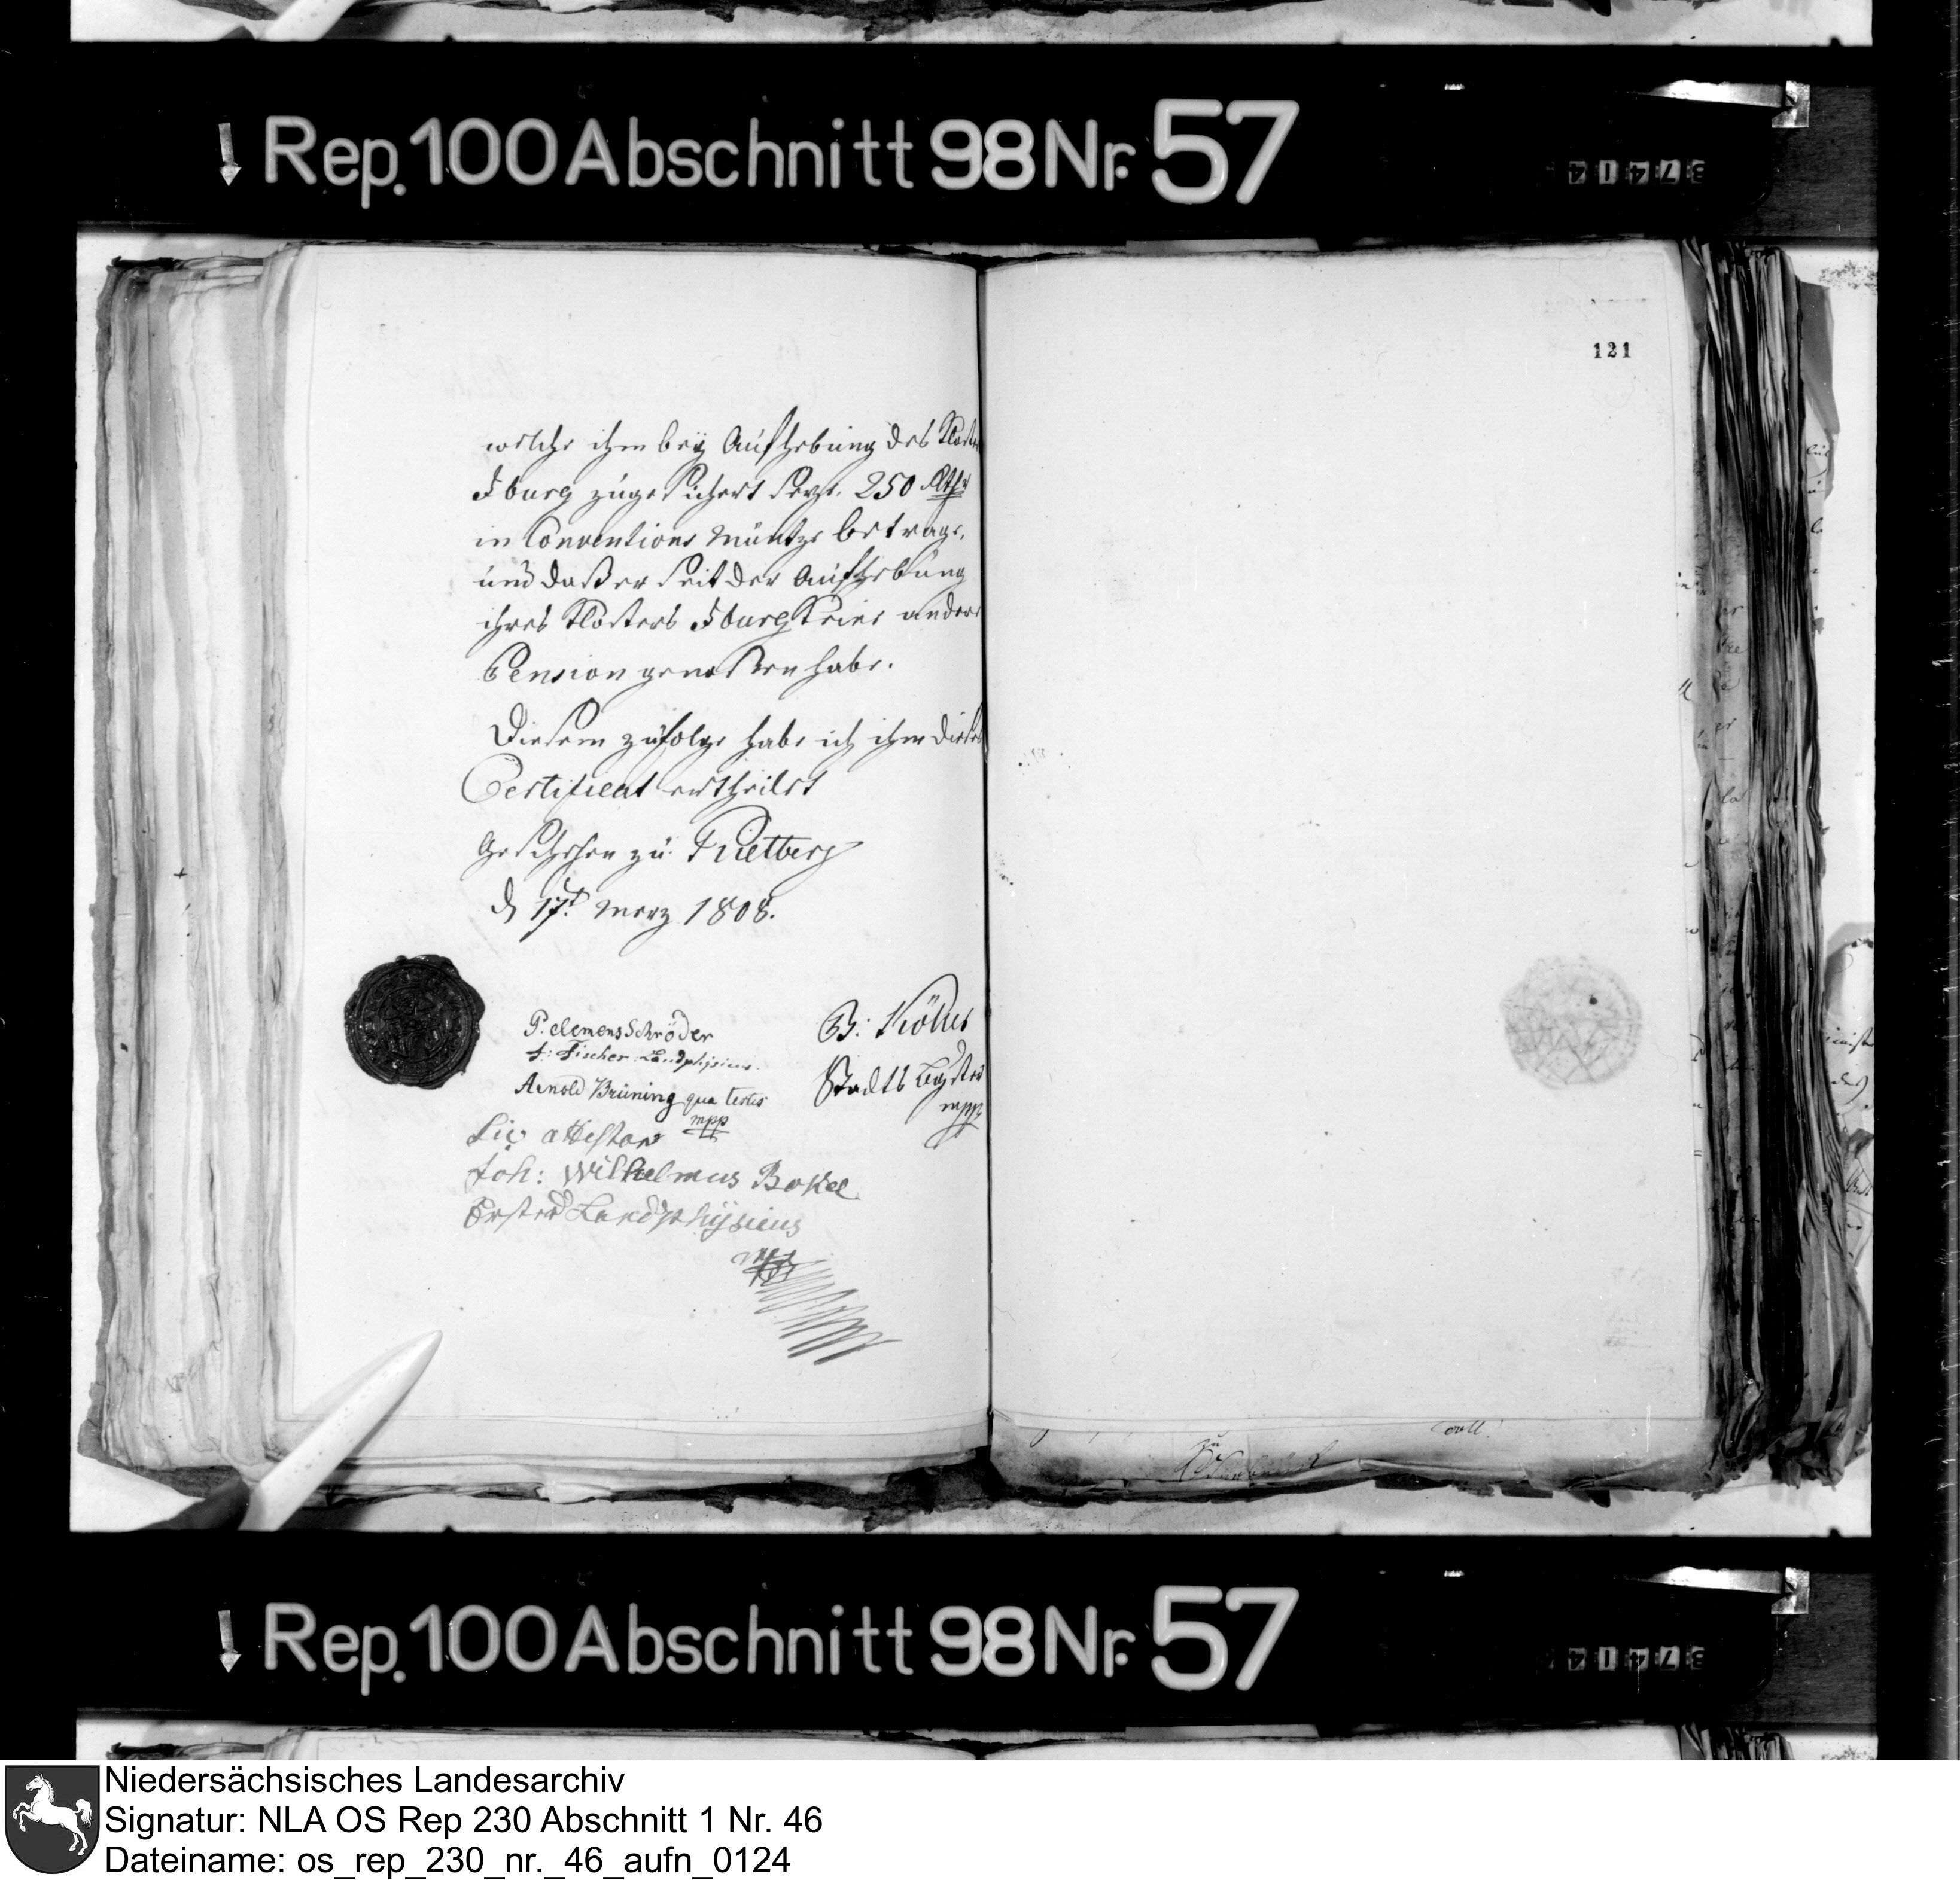 Rep. 100 Abschnitt 98 Nr. 57
121
welche ihm beÿ Aufhebung des Kloster
Iburg zugesichert seye. 250 Rthr
in Conventions Müntze betrage,
und daß er seit der Aufhebung
ihres Klosters Iburg keine andere
Pension genoßen habe.
Diesem zufolge habe ich ihm dieses
Certificat ertheilet
Geschehen zu Rietberg
d 17t. Merz 1808.
P. Clemens Schröder
f: Fischer Landphysicus.
Arnold Brüning qua testis
mpp
Sic attestor
Joh: Wilhelmus Bokel
Erster Landphÿsicus
mpp
B:
Stadts
mpp
Rep. 100 Abschnitt 98 Nr. 57
Niedersächsisches Landesarchiv
Signatur: NLA OS Rep 230 Abschnitt 1 Nr. 46
Dateiname: os_rep_230_nr._46_aufn_0124